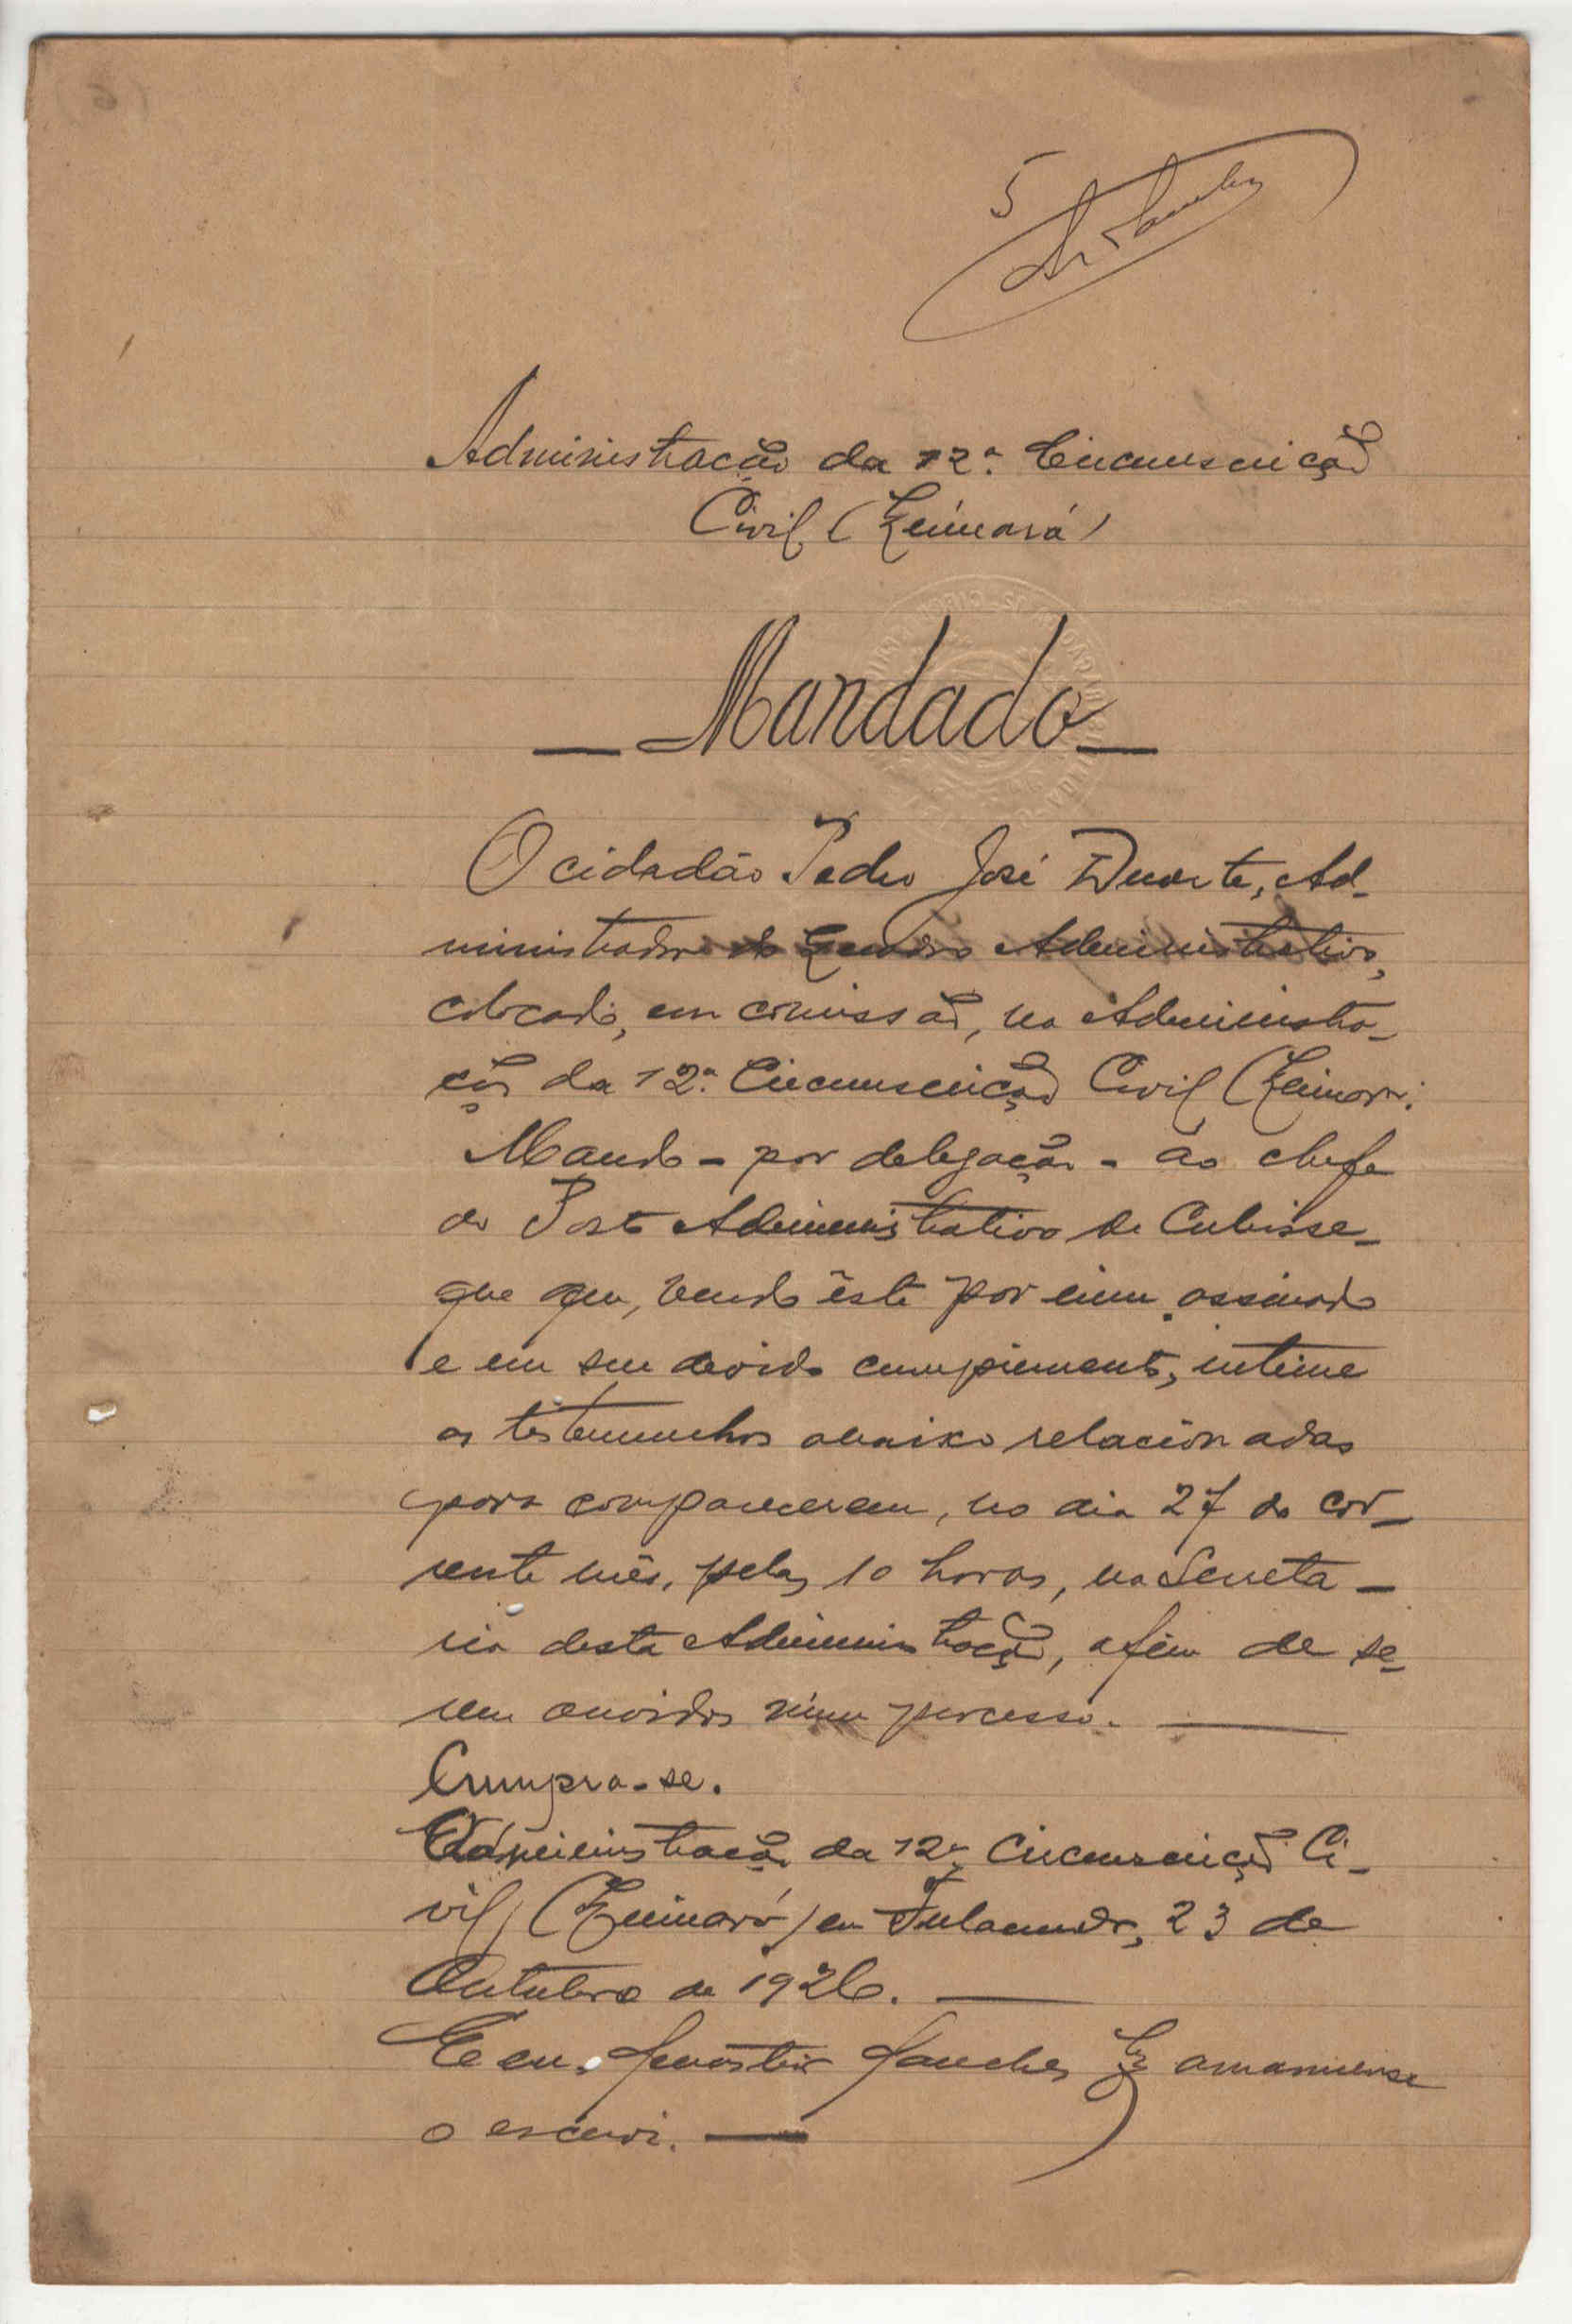 5
Administração da 12ª Circunscrição
Civil (Quinará)
— Mandado —
O cidadão Pedro José Duarte, Ad-
ministrador do Quadro Administrativo,
colocado, em comissão, na Administra-
ção da 12ª Circunscrição Civil (Quinará:
Mando - por delegação - ao chefe
do Posto Administrativo de Cubisse-
que que, vendo êste por mim assinado
e em seu devido cumprimento, intime
as testemunhas abaixo relacionadas
para comparecerem, no dia 27 do cor-
rente mês, pelas 10 horas, na Secreta-
ria desta Administração, afim de se-
rem ouvidos núm processo. —
Cumpra-se.
Administração da 12ª Circunscrição Ci-
vil, (Quinará) em Fulacunda, 23 de
Outubro de 1926. —
E eu. Sanches amanuense
o escrevi. —